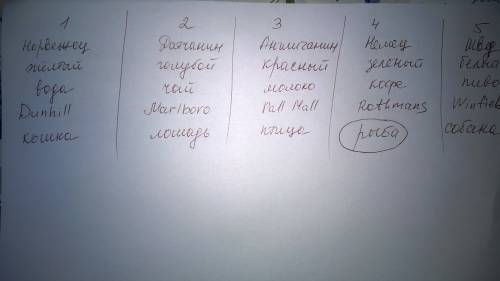 1 2 3 4 5
Норвежец Датчанин Англичанин Немец Швед
жёлтый голубой красный зеленый
вода чай молоко кофе пиво
Dunhill Marlboro Pall Mall Rothmans Winfiel
кошка лошадь птица рыба собака